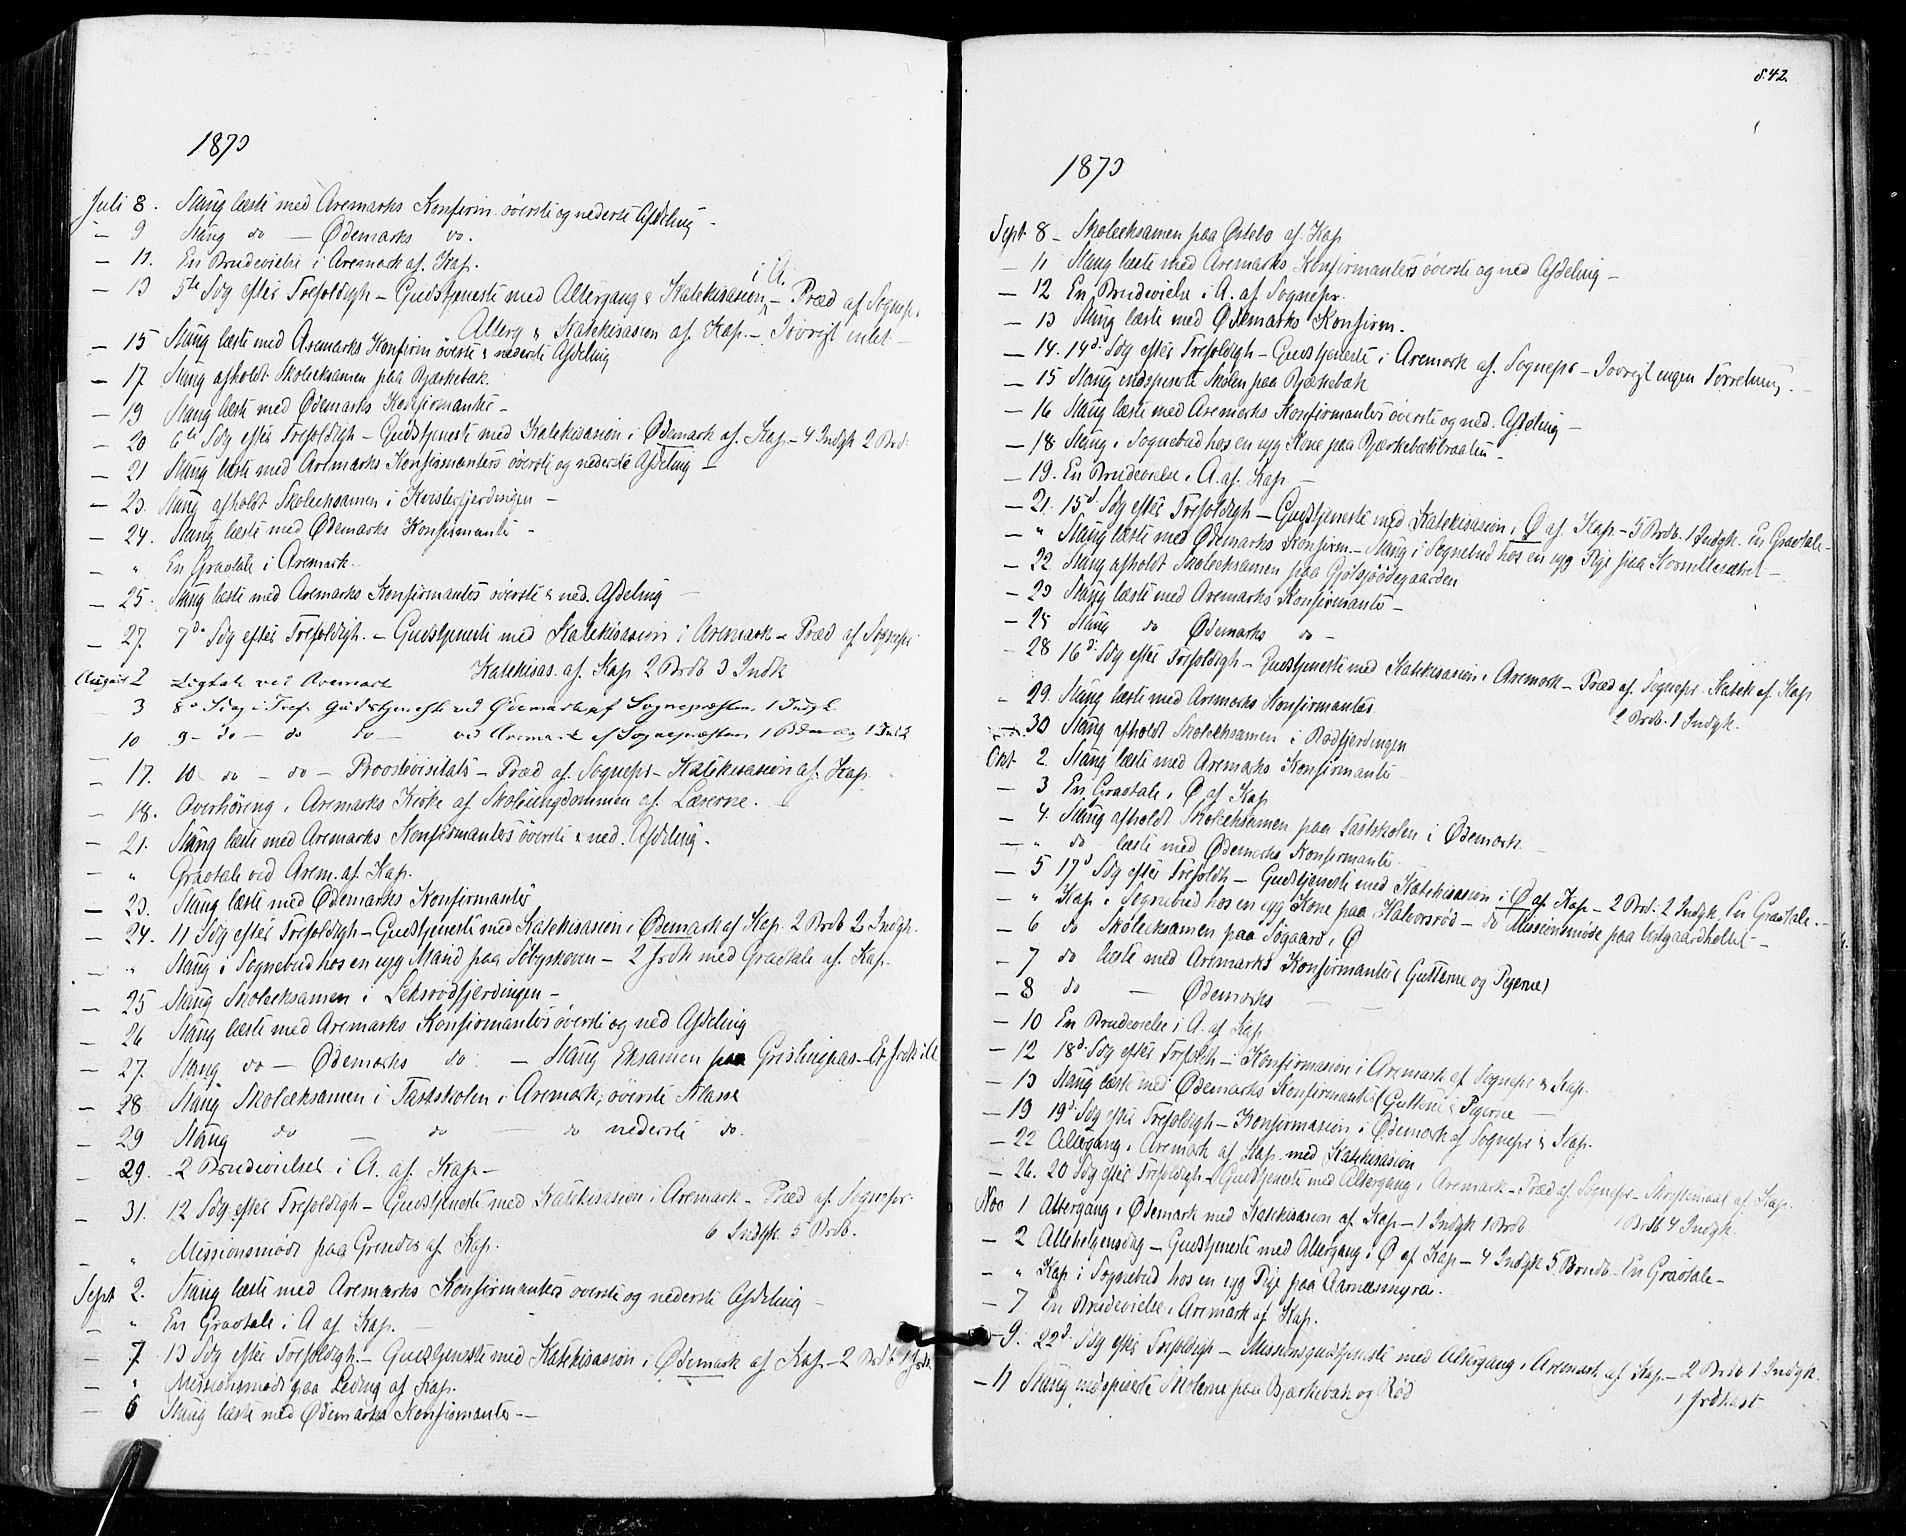 1873
Juli 8. Stang læste med Aremarks Konfirm. øverste og nederste Afdeling –
— 9 Stang do — Ødemarks do.
— 11. En Brudevielse i Aremark af Kap.
— 13 5te Sdg efter Trefoldigh – Gudstjeneste med Altergang & Katekisasion i A. – Præd af Sognepr.
Alterg & Katekisasion af Kap. – Iøvrigt intet –
— 15 Stang læste med Aremarks Konfirm øverste & nederste Afdeling
— 17. Stang afholdt Skoleeksamen paa Bjærkebæk.
— 19 Stang læste med Ødemarks Konfirmanter –
— 20 6te Sdg efter Trefoldigh – Gudstjeneste med Katekisasion i Ødemark af Kap – 4 Indgk 2 Brd.
— 21 Stang læste med Aremarks Konfirmanters øverste og nederste Afdeling –
— 23. Stang afholdt Skoleeksamen i Kvislerfjerdingen –
— 24. Stang læste med Ødemarks Konfirmanter –
— " En Gravtale i Aremark.
— 25. Stang læste med Aremarks Konfirmanter øverste & ned. Afdeling –
— 27. 7de Sdg efter Trefoldigh. – Gudstjeneste med Katekisasion i Aremark – Præd af Sognepr
Katekisas. af Kap 2 Brdb 3 Indk
August 2 Ligtale ved Aremark
3 8de Sdag i Tref. Gudstjeneste ved Ødemark af Sognepræsten, 1 Indgk
10 9 – do – do do — ved Aremark af Sognepræsten
— 17. 10 do – do – Proostivisitats – Præd af Sognepr – Katekisasion af Kap.
— 18. Overhøring i Aremarks Kirke af Skoleungdommen af Lærerne. –
— 21. Stang læste med Aremarks Konfirmanters øverste & ned. Afdeling –
— " Gravtale ved Arem. af Kap.
— 23. Stang læste med Ødemarks Konfirmanter
— 24. 11 Sdg efter Trefoldigh – Gudstjeneste med Katekisasion i Ødemark af Kap. 2 Brdb 2 Indgk.
— " Stang i Sognebud hos en syg Mand paa Sibyskoven – 2 Jrdk med Gravtale af Kap.
— 25 Stang Skoleeksamen i Leksrodfjerdingen –
— 26 Stang læste med Aremarks Konfirmanters øverste og ned Afdeling
— 27. Stang do — Ødemarks do. – Stang Eksamen paa Grislingaas –
— 28 Stang Skoleeksamen i Fastskolen i Aremark, øverste Klasse
— 29 Stang do — do — do nederste do.
— 29. 2 Brudevielser i A. af Kap –
— 31. 12 Sdg efter Trefoldigh – Gudstjeneste med Katekisasion i Aremark – Præd af Sognepr.
6 Indgk 5 Brdb.
— " Missionsmøde paa Grendes af Kap.
Sept 2. Stang læste med Aremarks Konfirmanters øverste og nederste Afdeling –
— " En Gravtale i A af Kap. –
— 7. 13 Sdg efter Trefoldigh. – Gudstjeneste med Katekisasion i Ødemark af Kap – 2 Brdb 1 Jrdk
— " Missionsmøde paa Leding af Kap.
— 6 Stang læste med Ødemarks Konfirmanter –
842.
1873
Sept 8 – Skoleeksamen paa Ørlebo af Kap
— 11 Stang læste med Aremarks Konfirmanters øverste og ned Afdeling –
— 12 En Brudevielse i A. af Sognepr.
— 13 Stang læste med Ødemarks Konfirm.
— 14. 14de Sdg efter Trefoldigh – Gudstjeneste i Aremark af Sognepr – Iøvrigt ingen Forretning.
— 15 Stang indspiserte Skolen paa Bjækebæk
— 16 Stang læste med Aremarks Konfirmanters øverste og ned. Afdeling –
— 18. Stang i Sognebud hos en syg Kone paa Bjærkebækbraaten –
— 19. En Brudevielse i A. af Kap –
— 21. 15d. Sdg efter Trefoldigh – Gudstjeneste med Katekisasion i Ø af Kap – 5 Brdb. 1 Indgk. En Gravtale –
— " Stang læste med Ødemarks Konfirm. – Stang i Sognebud hos en syg Pige paa
— 22 Stang afholdt Skoleeksamen paa Gjølsjøødegaarden
— 23 Stang læste med Aremarks Konfirmanter –
— 25 Stang do Ødemarks do –
— 28 16d. Sdg efter Trefoldigh – Gudstjeneste med Katekisasion i Aremark – Præd af Sognepr. Katek af Kap
2 Brdb. 1 Indgk.
— 29. Stang læste med Aremarks Konfirmanter
— 30 Stang afholdt Skoleeksamen i Rødfjerdingen
Okt. 2. Stang læste med Aremarks Konfirmanter
— 3 En Gravtale i Ø af Kap
— 4. Stang afholdt Skoleeksamen paa Fastskolen i Ødemark –
— " do læste med Ødemarks Konfirmanter.
— 5 17d Sdg efter Trefoldh – Gudstjeneste med Katekisasion i Ø af Kap – 2 Brd. 2 Indgk, En Gravtale. –
— " Kap i Sognebud hos en syg Kone paa Halvorsrød – do Missionsmøde paa
— 6 do Skoleeksamen paa Søgaard i Ø
— 7 do læste med Aremarks Konfirmanter (Gutterne og Pigerne)
— 8 do — Ødemarks
— 10 En Brudevielse i A. af Kap.
— 12 18d. Sdg efter Trefoldh – Konfirmasion i Aremark af Sognepr & Kap.
— 13 Stang læste med Ødemarks Konfirmanter (Gutterne & Pigerne –
— 19 19d. Sdg efter Trefoldigh – Konfirmasion i Ødemark af Sognepr & Kap.
— 22 Altergang i Aremark af Kap. med Katekisasion
— 26. 20 Sdg efter Trefoldigh – Gudstjeneste med Altergang i Aremark – Præd af Sognepr – Skriftemaal af Kap.
1 Brdb 4 Indgk.
Nov 1 Altergang i Ødemark med Katekisasion af Kap – 1 Indgk 1 Brd
— 2 Allehelgensdag – Gudstjeneste med Altergang i Ø af Kap – 4 Indgk 5 Brudv. En Gravtale –
— " Kap i Sognebud hos en syg Pige paa Aarnæsmyra.
— 7 En Brudevielse i Aremark af Kap.
— 9. 22d. Sdg efter Trefoldigh – Missionsgudstjeneste med Altergang i Aremark af Kap – 2 Brdb 1 Indgk.
1 Jrdkast
— 11 Stang indspiserte Skolerne paa Bjærkebæk og Rød